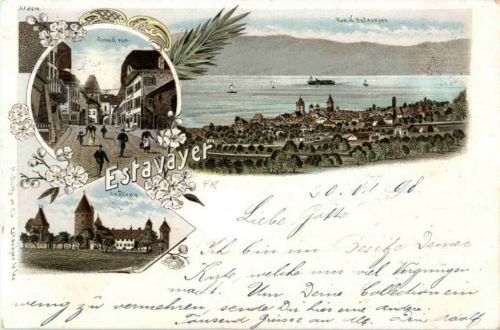 Grand rue.
Vue d'Estavayer
Estavayer
Château
20. VI 98
Liebe
Ich bin im Besitze Deiner
Karte welche uns viel Vergnügen
macht. Um Deine Collection ein
wenig zu vermehren sende Dir hier eine andere.
Tausend Grüsse an alle